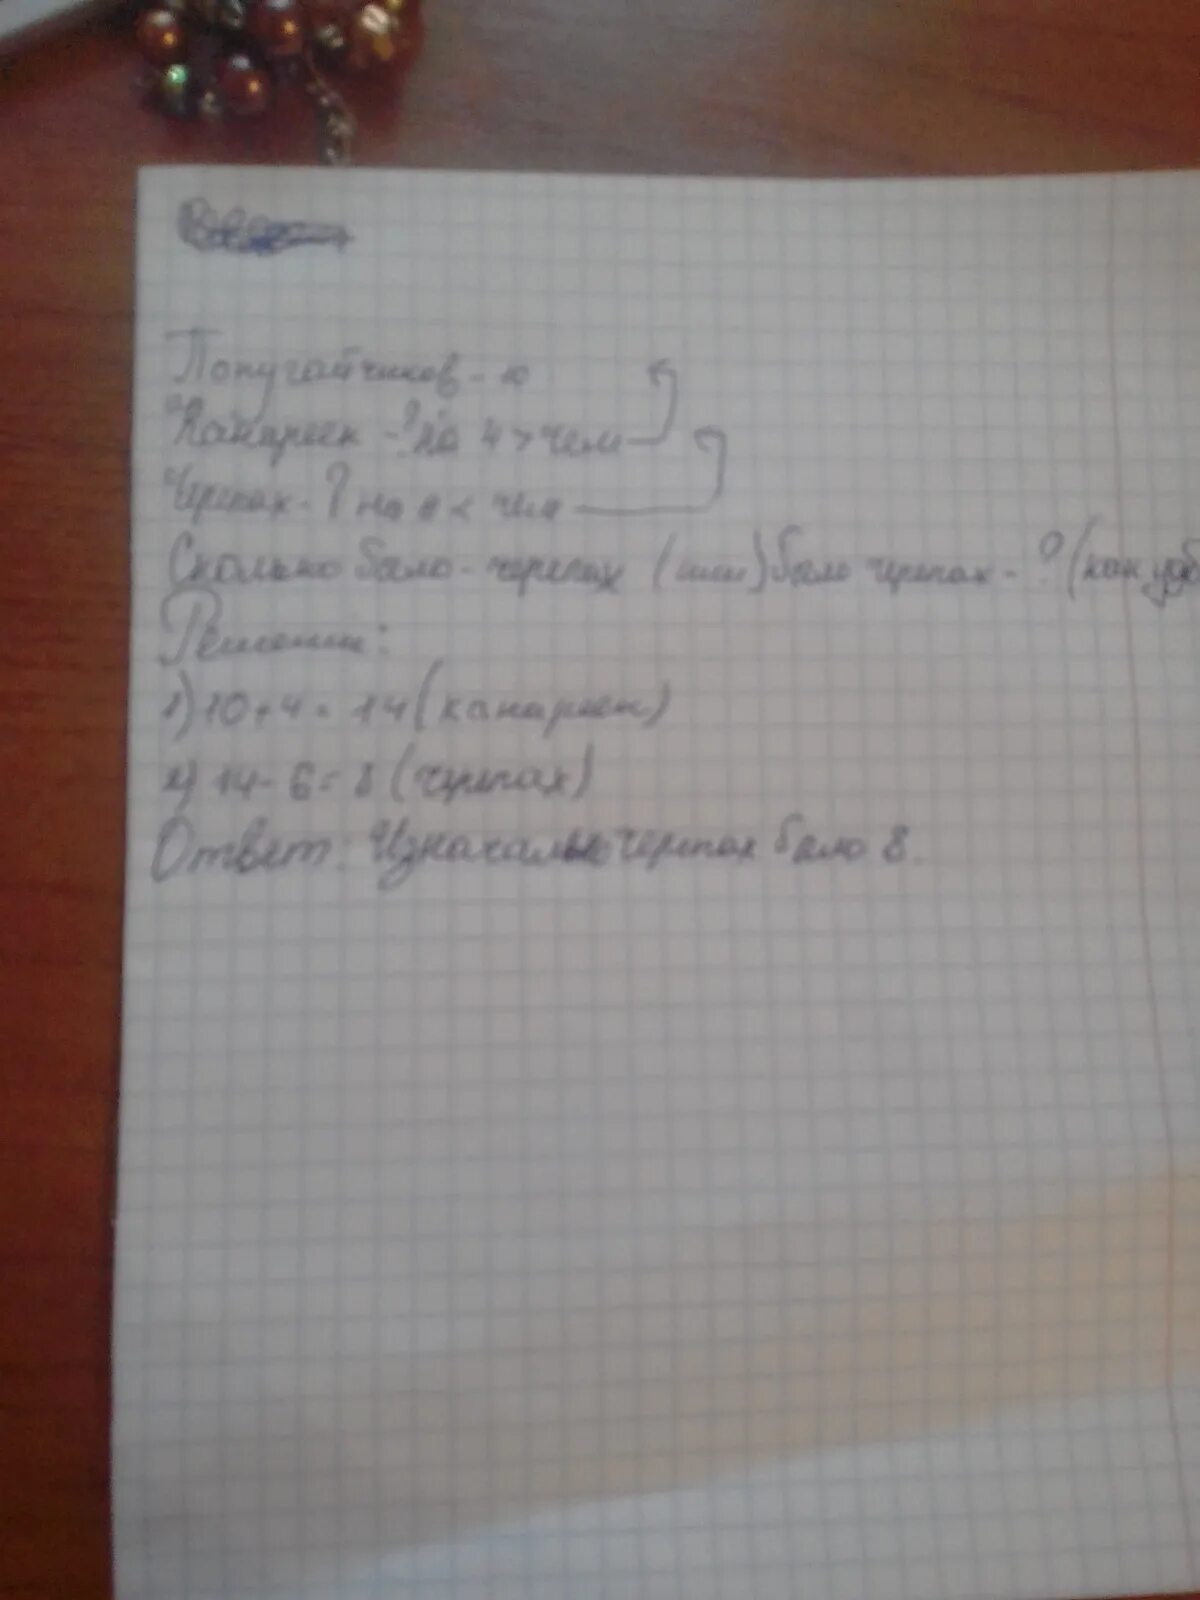 Попугайчиков - 10
Канареек - ? на 4 > чем
Черепах - ? на 6 < чем
Сколько было - черепах (или) было черепах - ? (как удоб
Решение:
1) 10 + 4 = 14 (канареек)
2) 14 - 6 = 8 (черепах)
Ответ: Изначально черепах было 8.